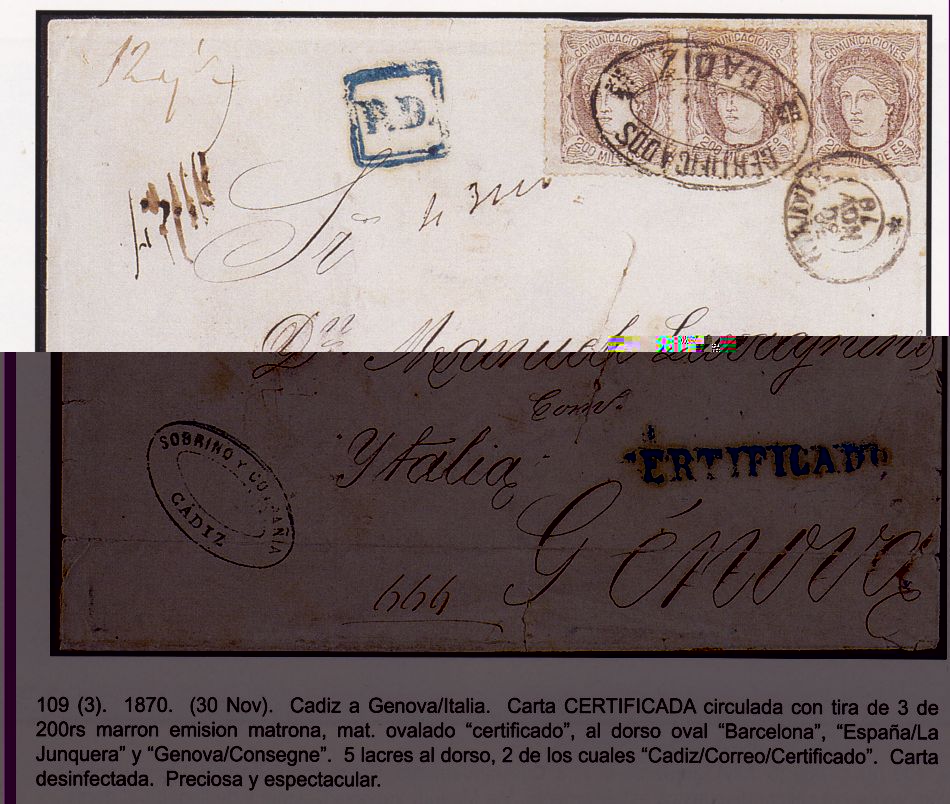 P.D.
COMUNICACIONES COMUNICACIONES COMUNICACIONES
200 MIL
CERTIFICADOS
CADIZ
30 NOV 70
Sr
Dn Manuel
Conl.
Ytalia
CERTIFICADO
SOBRINO Y COMPAÑIA
CÁDIZ
Génova
109 (3). 1870. (30 Nov). Cadiz a Genova/Italia. Carta CERTIFICADA circulada con tira de 3 de
200rs marron emision matrona, mat. ovalado “certificado”, al dorso oval “Barcelona”, “España/La
Junquera” y “Genova/Consegne”. 5 lacres al dorso, 2 de los cuales “Cadiz/Correo/Certificado”. Carta
desinfectada. Preciosa y espectacular.